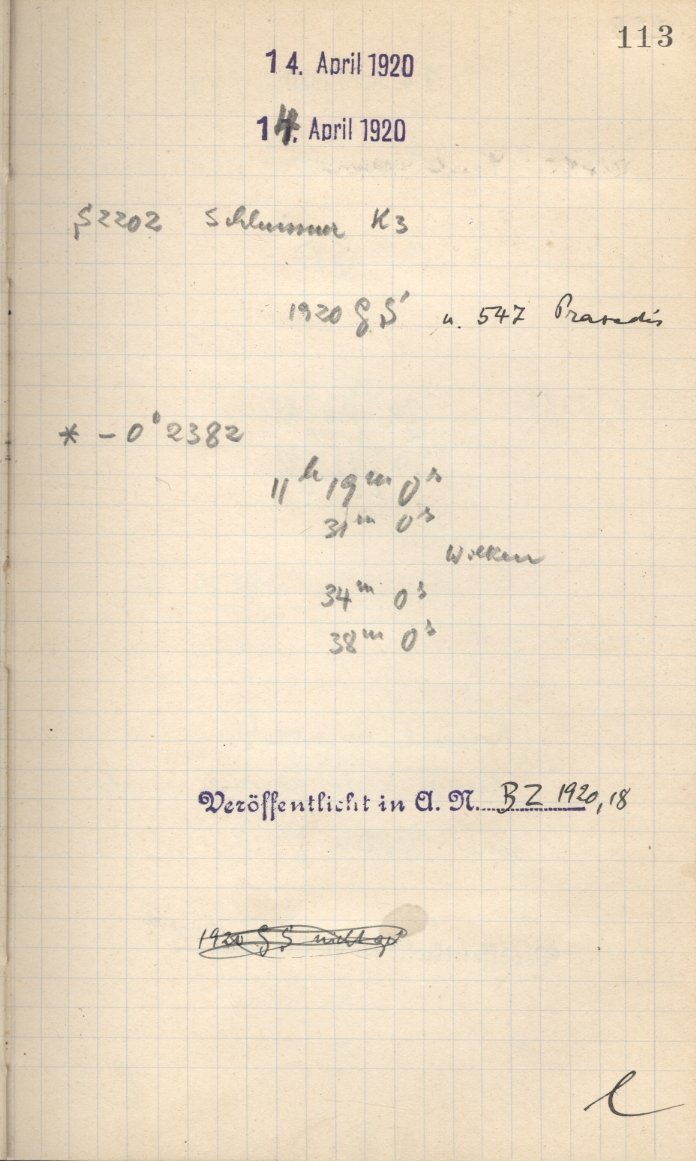 113
14. April 1920
14. April 1920
S2202 Schleussner K3
1920 GS u. 547 Praxedis
* - 0° 2382
11h 19m 0s
31m 0s
Wolken
34m 0s
38m 0s
Veröffentlicht in A. N. BZ 1920, 18
1920 GS nicht